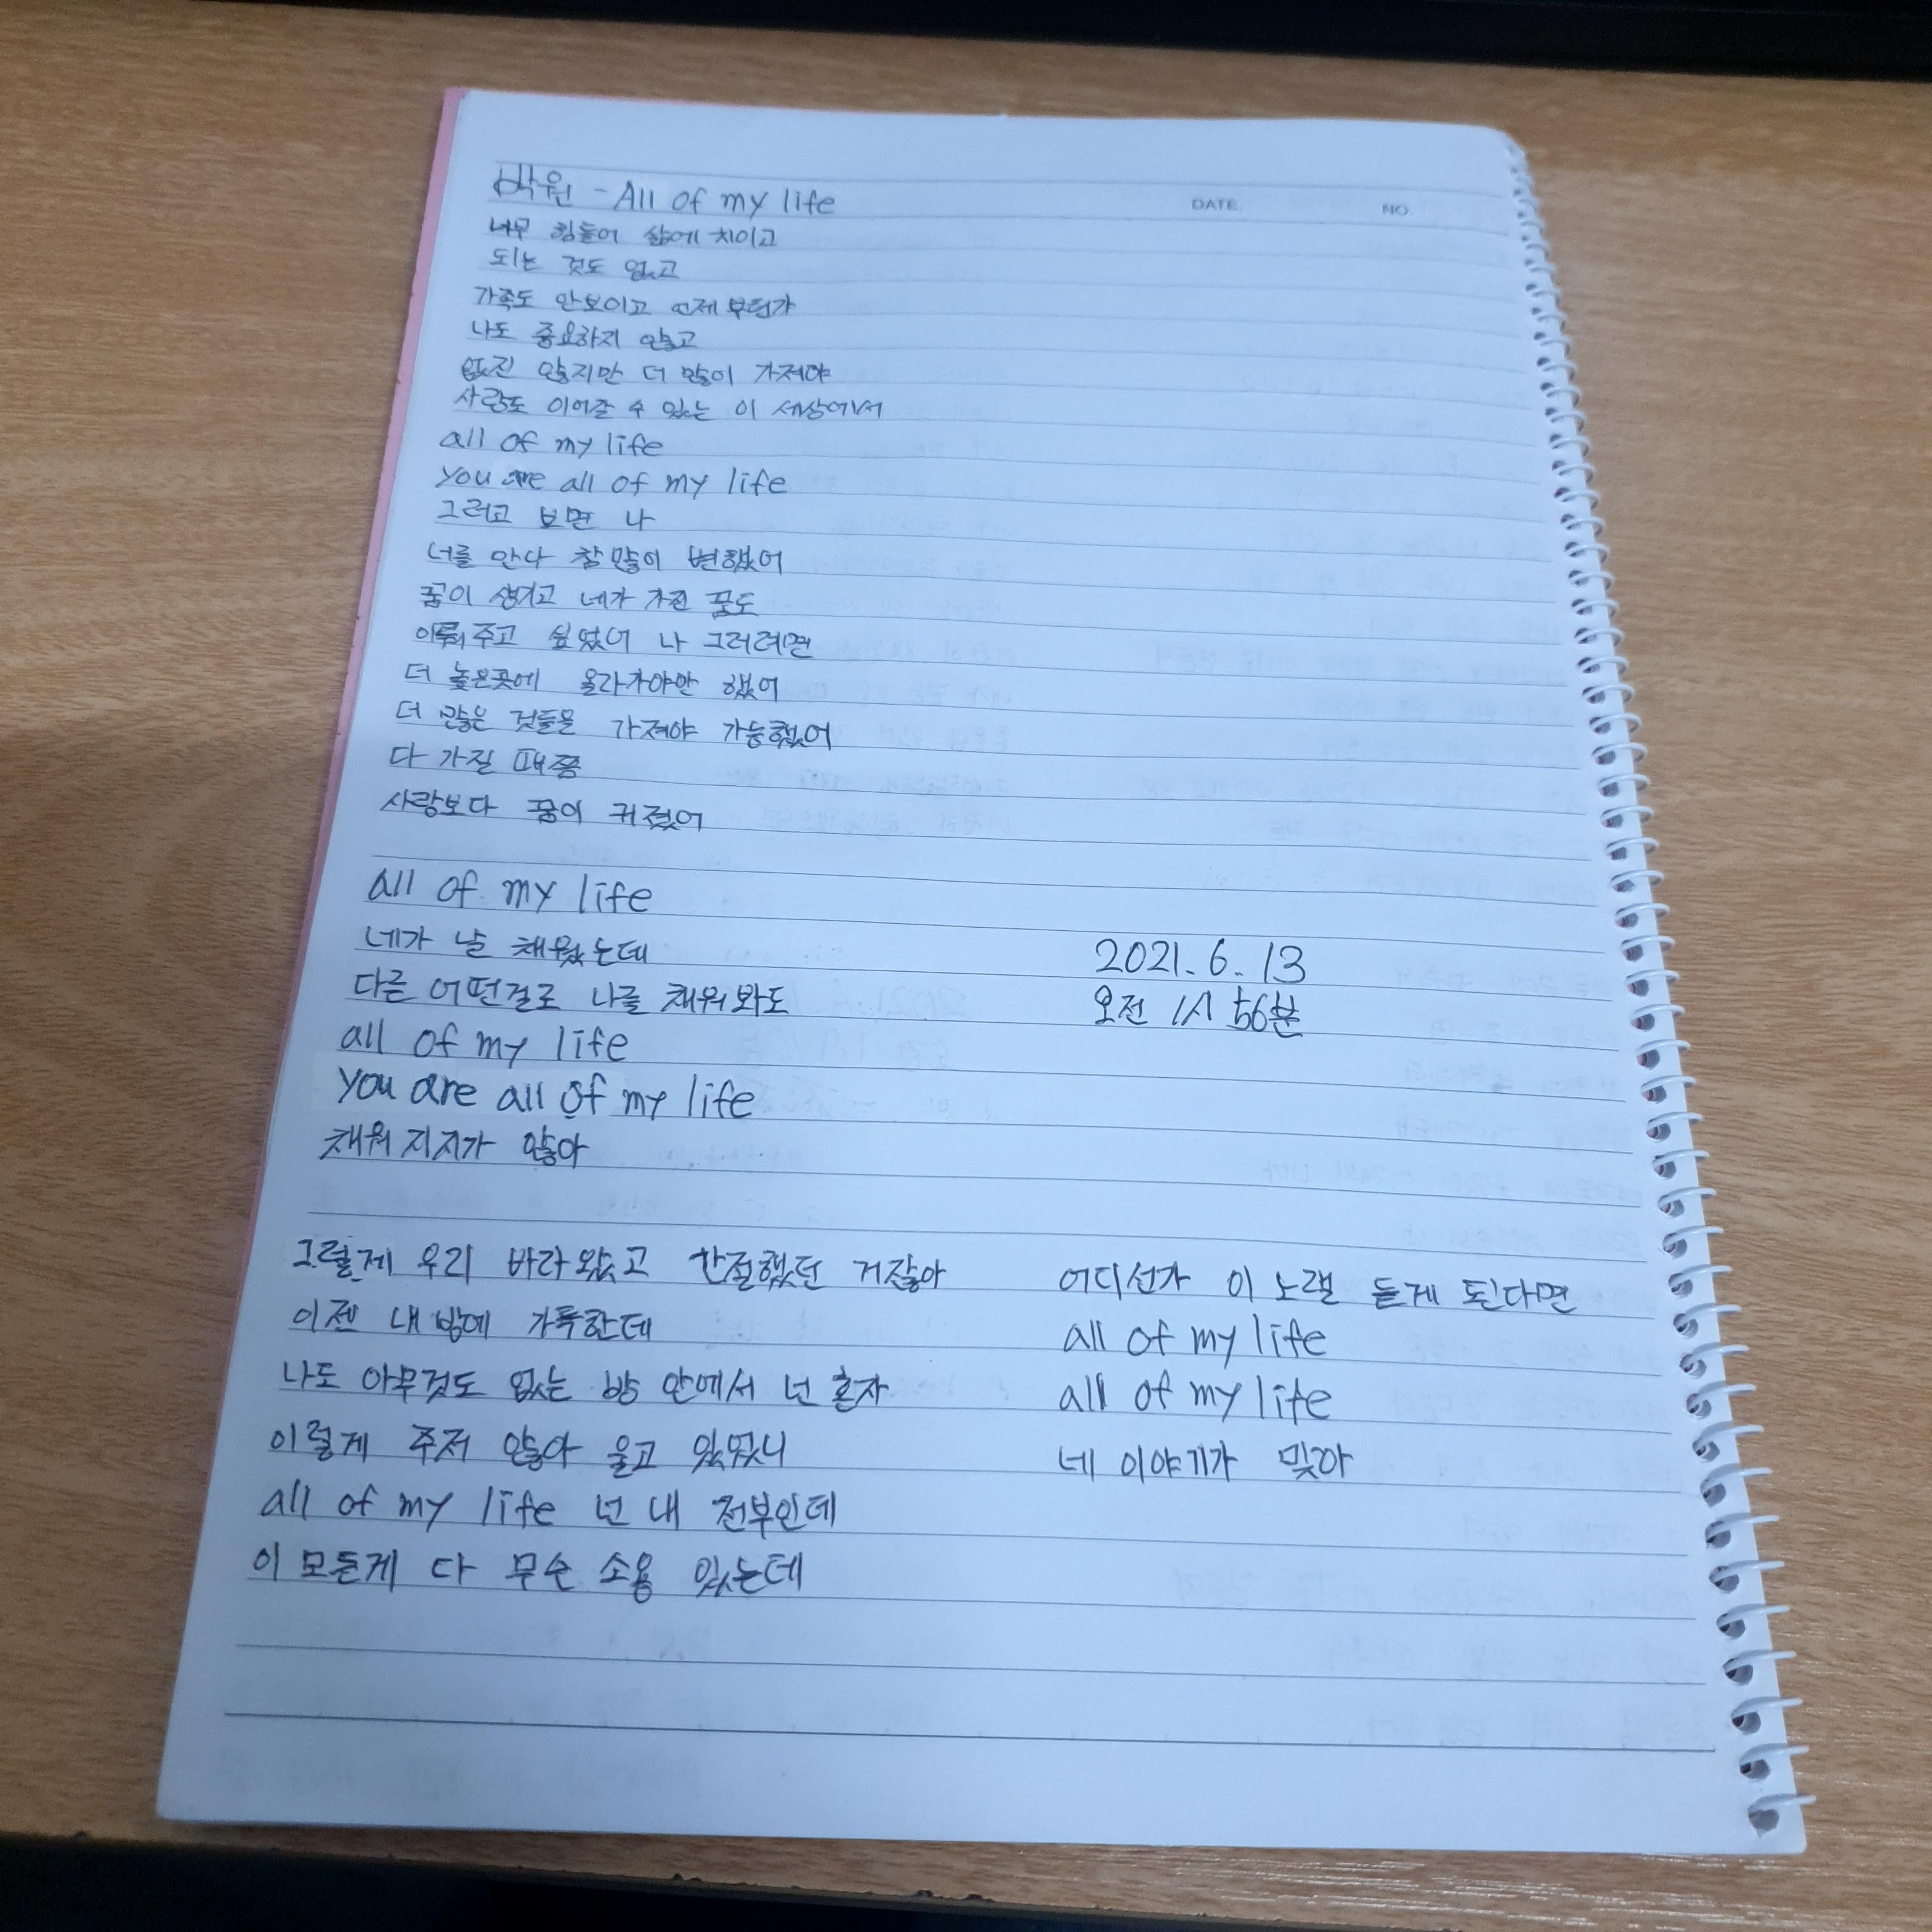 박원 - All of my life
DATE. NO.
너무 힘들어 삶에 치이고
되는 것도 없고
가족도 안보이고 언제부턴가
나도 중요하지 않고
없진 않지만 더 많이 가져야
사랑도 이어갈 수 있는 이 세상에서
all of my life
you are all of my life
그러고 보면 나
너를 만나 참 많이 변했어
꿈이 생기고 네가 가진 꿈도
이뤄주고 싶었어 나 그러려면
더 높은곳에 올라가야만 했어
더 많은 것들을 가져야 가능했어
다 가질 때쯤
사랑보다 꿈이 커졌어
all of my life
네가 날 채웠는데
다른 어떤걸로 나를 채워봐도
all of my life
you are all of my life
채워지지가 않아
2021. 6. 13
오전 1시 56분
그렇게 우리 바라왔고 간절했던 거잖아
이젠 내 방에 가득한데
나도 아무것도 없는 방 안에서 넌 혼자
이렇게 주저 않아 울고 있었니
all of my life 넌 내 전부인데
이 모든게 다 무슨 소용 있는데
어디선가 이 노랠 듣게 된다면
all of my life
all of my life
네 이야기가 맞아